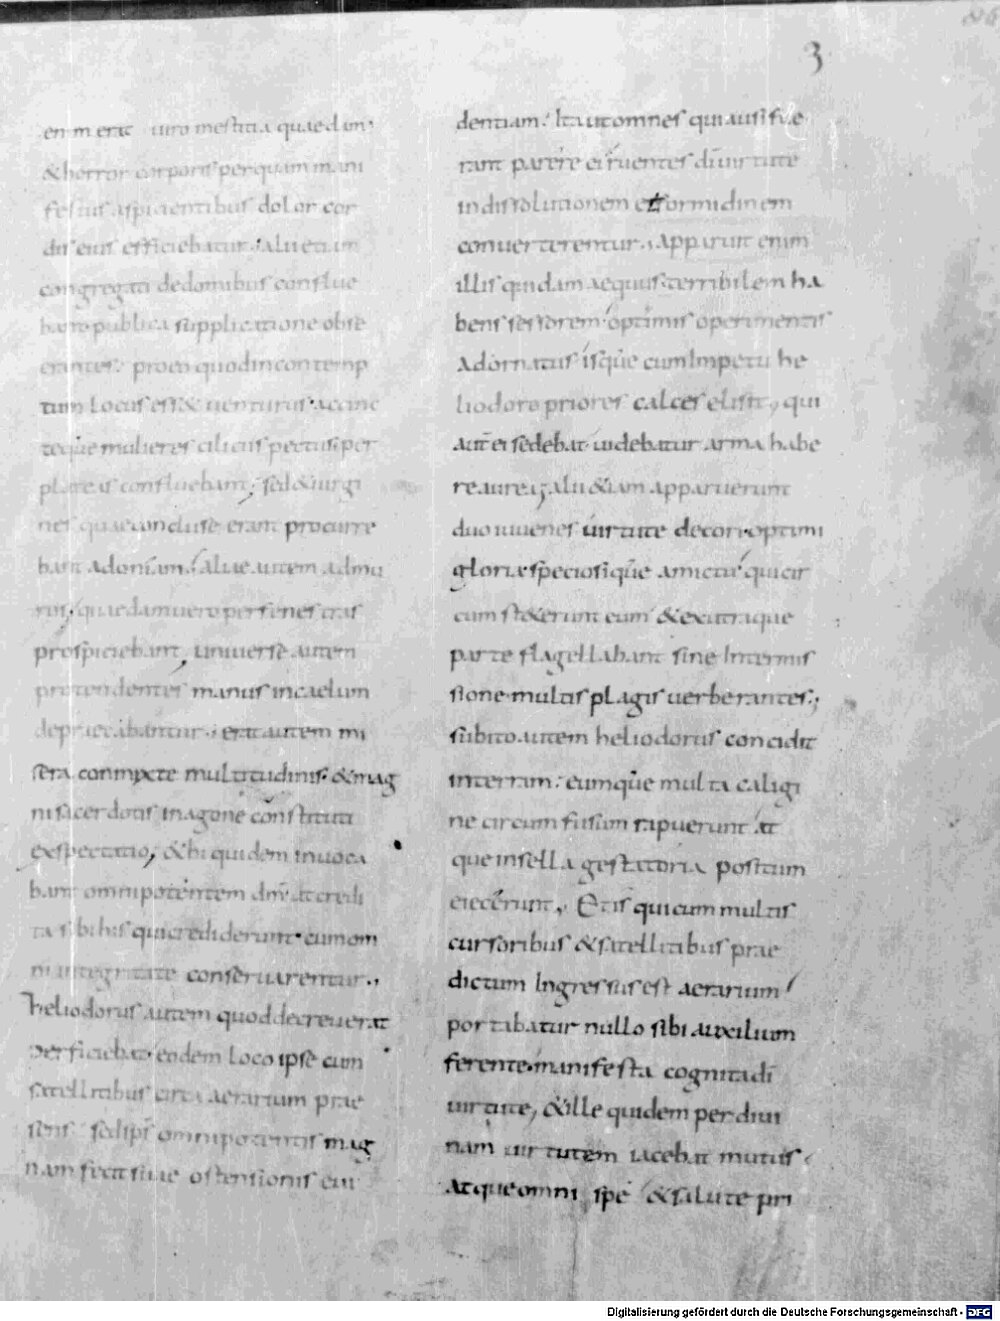 3
enim erat uiro mestitia quaedam
& horror corporis per quam mani
festus aspicientibus dolor cor
dis eius efficiebatur. alii etiam
congregati de domibus conflue
bant publica supplicatione obse
crantes. pro eo quod in contemp
tum locus ess& uenturus. accinc
teque mulieres ciliciis pectus. per
plateas confluebant; sed & uirgi
nes quae concluse erant procurre
bant ad oniam. aliae autem ad mu
ros, quaedam uero per fenestras
prospiciebant, uniuerse autem
protendentes manus in caelum
depraecabantur. erat autem mi
sera conmixte multitudinis. & mag
ni sacerdotis in agone constituti
exspectatio, & hi quidem inuoca
bant omnipotentem dnm ut credi
ta sibi his qui crediderunt. cum om
ni integritate conseruarentur.,
heliodorus autem quod decreuerat
perficiebat. eodem loco ipse cum
satellitibus circa aerarium prae
sens. sed sps omnipotentis mag
nam fecit suae ostensionis eui
dentiam. Ita ut omnes qui ausi fue
rant parere ei ruentes di uirtute
in dissolutionem et formidinem
conuerterentur., Apparuit enim
illis quidam aequus. terribilem ha
bens sessorem. optimis operimentis
Adornatus isque cum Impetu he
liodoro priores calces elisit, qui
aut ei sedebat uidebatur arma habe
re aurea, alii &iam apparuerunt
duo iuuenes uirtute decori. optimi
gloria speciosique amictu qui cir
cum st&erunt eum & ex utraque
parte flagellabant sine Intermis
sione. multis plagis uerberantes.,
subito autem heliodorus concidit
in terram. eumque multa caligi
ne circum fusum rapuerunt at
que in sella gestatoria positum
eiecerunt, Et is qui cum multis
cursoribus & satellitibus prae
dictum Ingressus est aerarium
portabatur nullo sibi auxilium
ferente. manifesta cognita di
uirtute, & ille quidem per diui
nam uirtutem iacebat mutus
Atque omni spe & salute pri
Digitalisierung gefördert durch die Deutsche Forschungsgemeinschaft - DFG